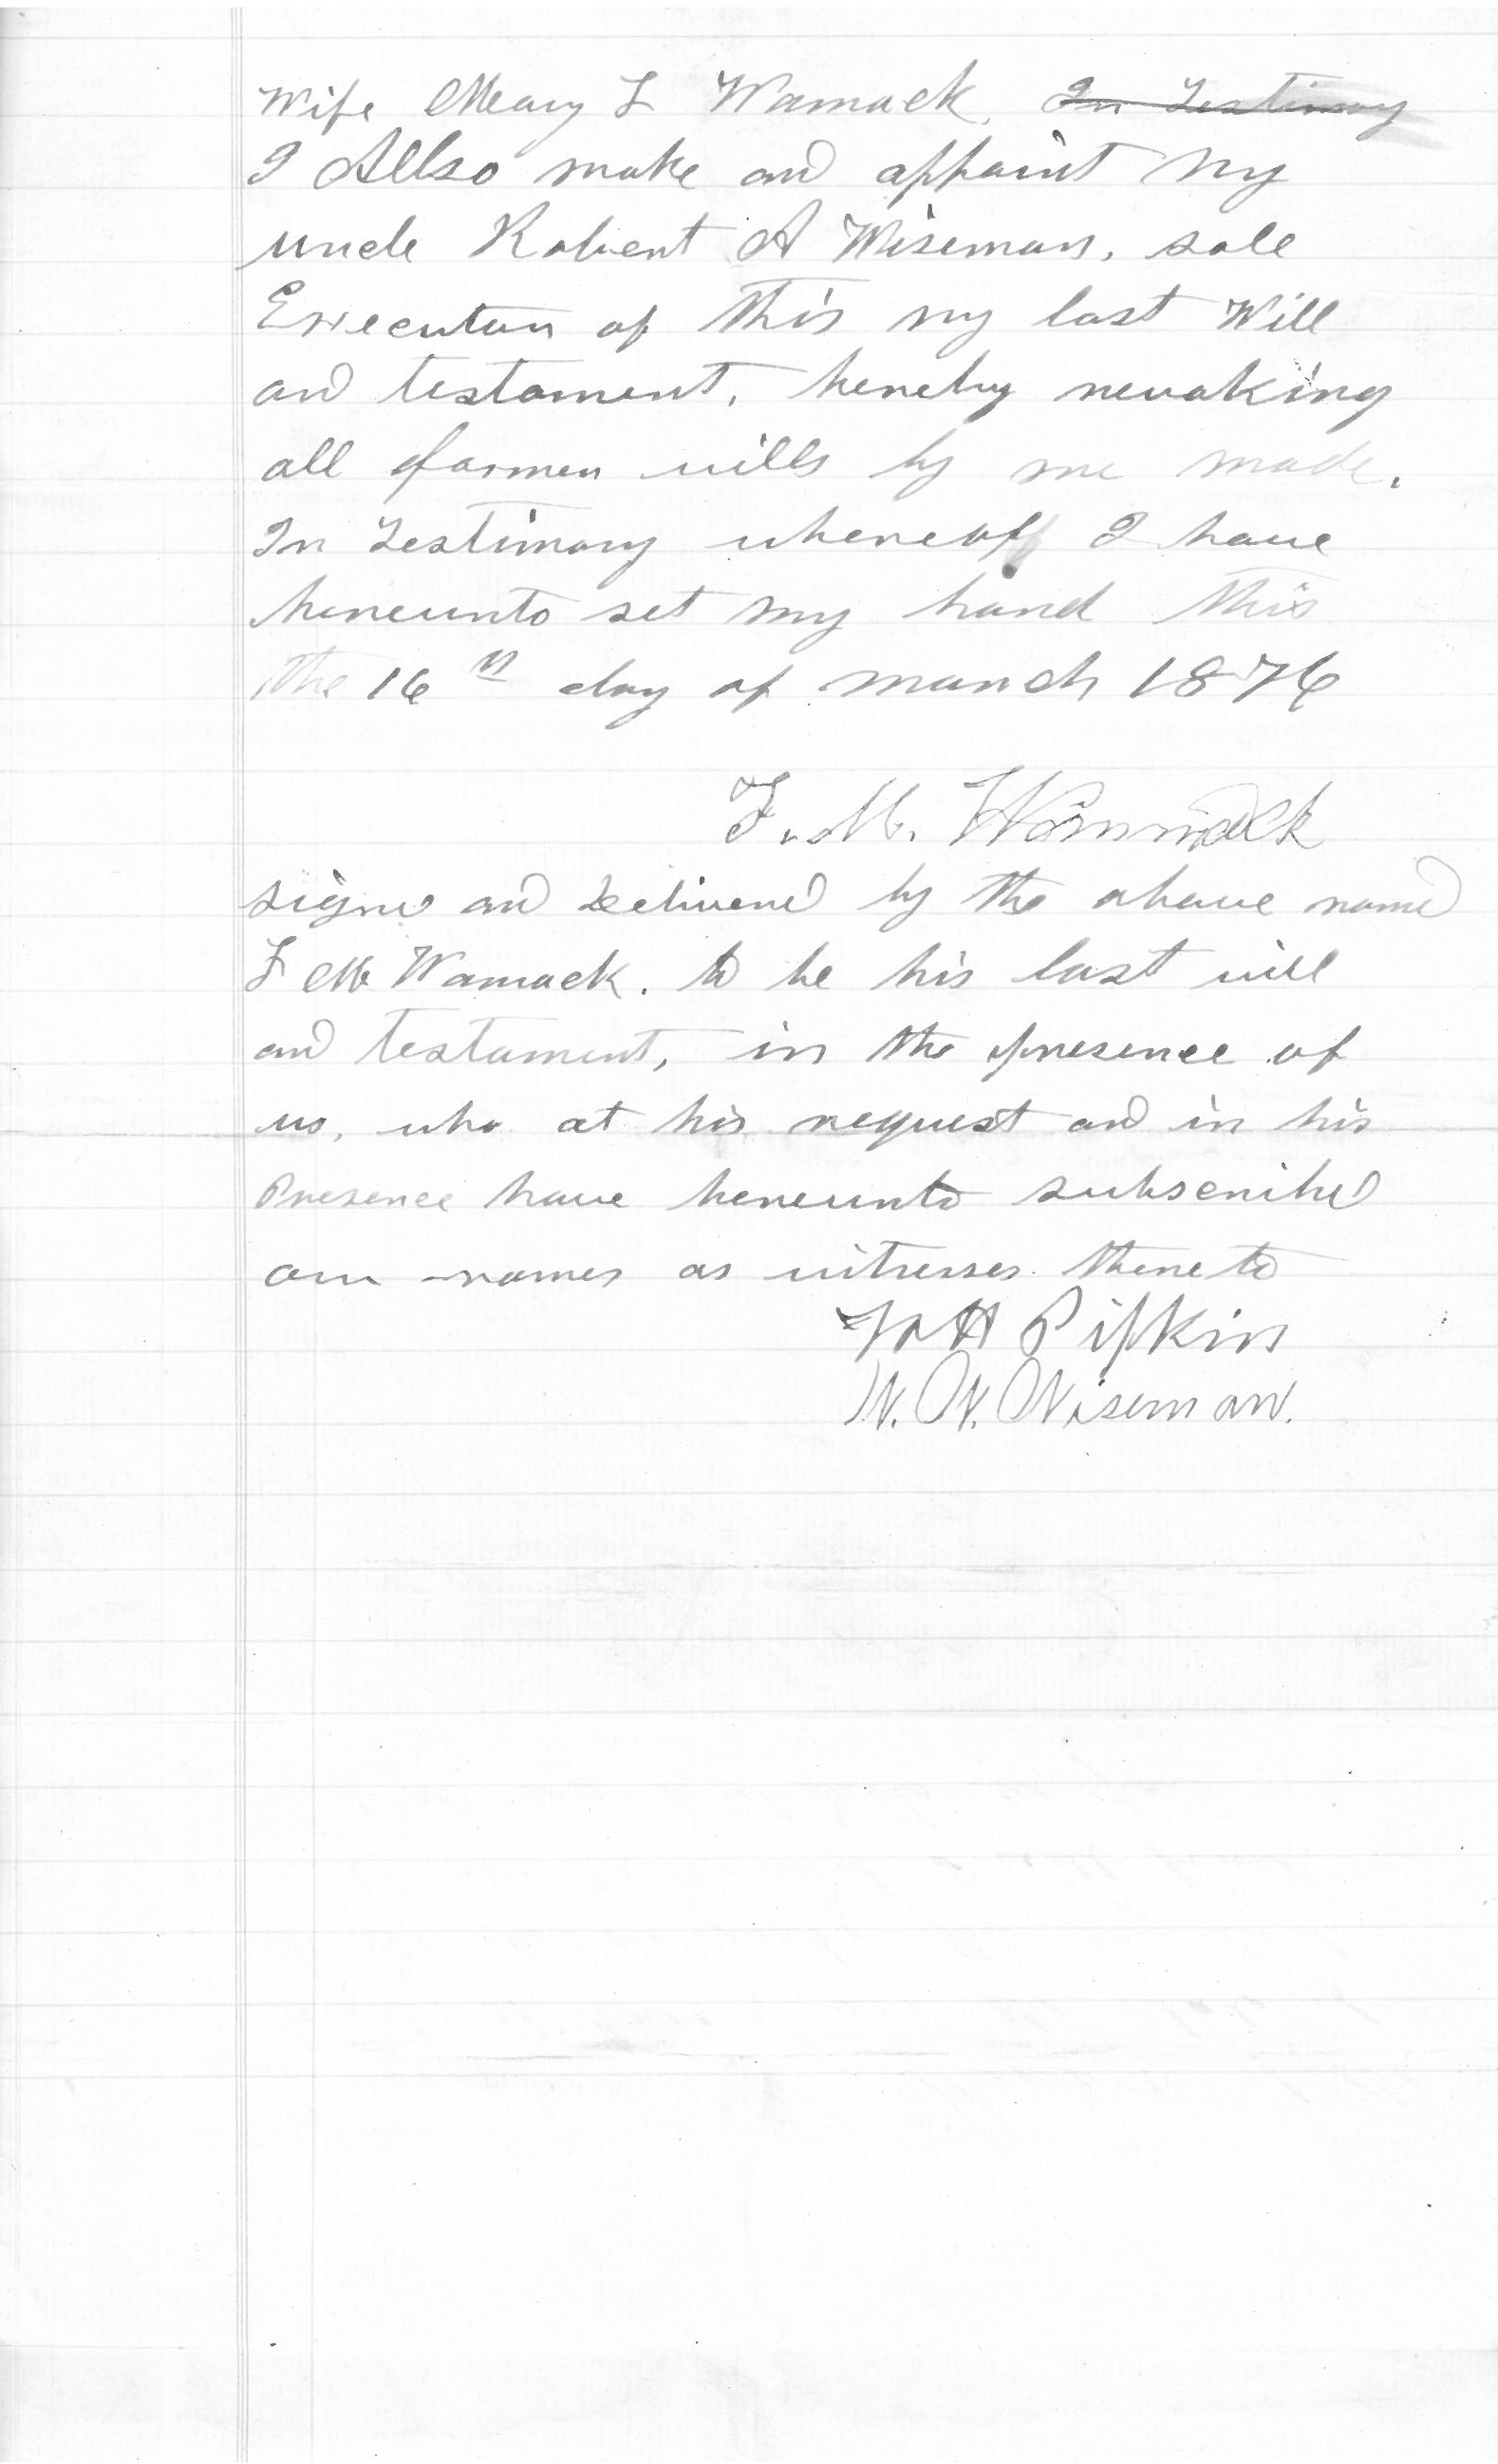 Wife Mary F Wamack, In Testimony
I Allso make and appoint my
uncle Robert A Wiseman, sole
Executor of this my last Will
and testament, hereby revoking
all former wills by me made,
In Testimony whereoff I have
hereunto set my hand this
the 16th day of march 1876
F. M. Wammack
signed and delivered by the above named
F M Wamack. to be his last will
and testament, in the presence of
us, who at his request and in his
Presence have hereunto subscribed
our names as witnesses thereto
W H Pipkin
W. W. Wiseman.